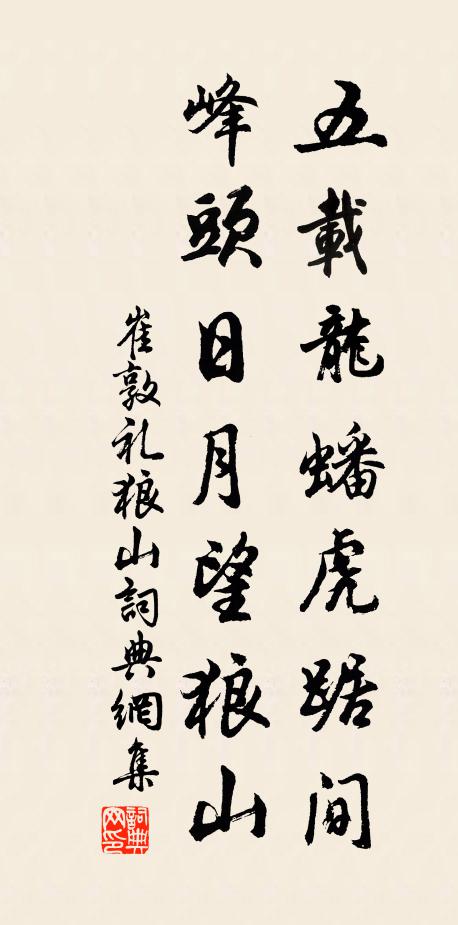 五載龍蟠虎踞間
峰頭日月望狼山
崔敦礼狼山詞典網集
詞典网印